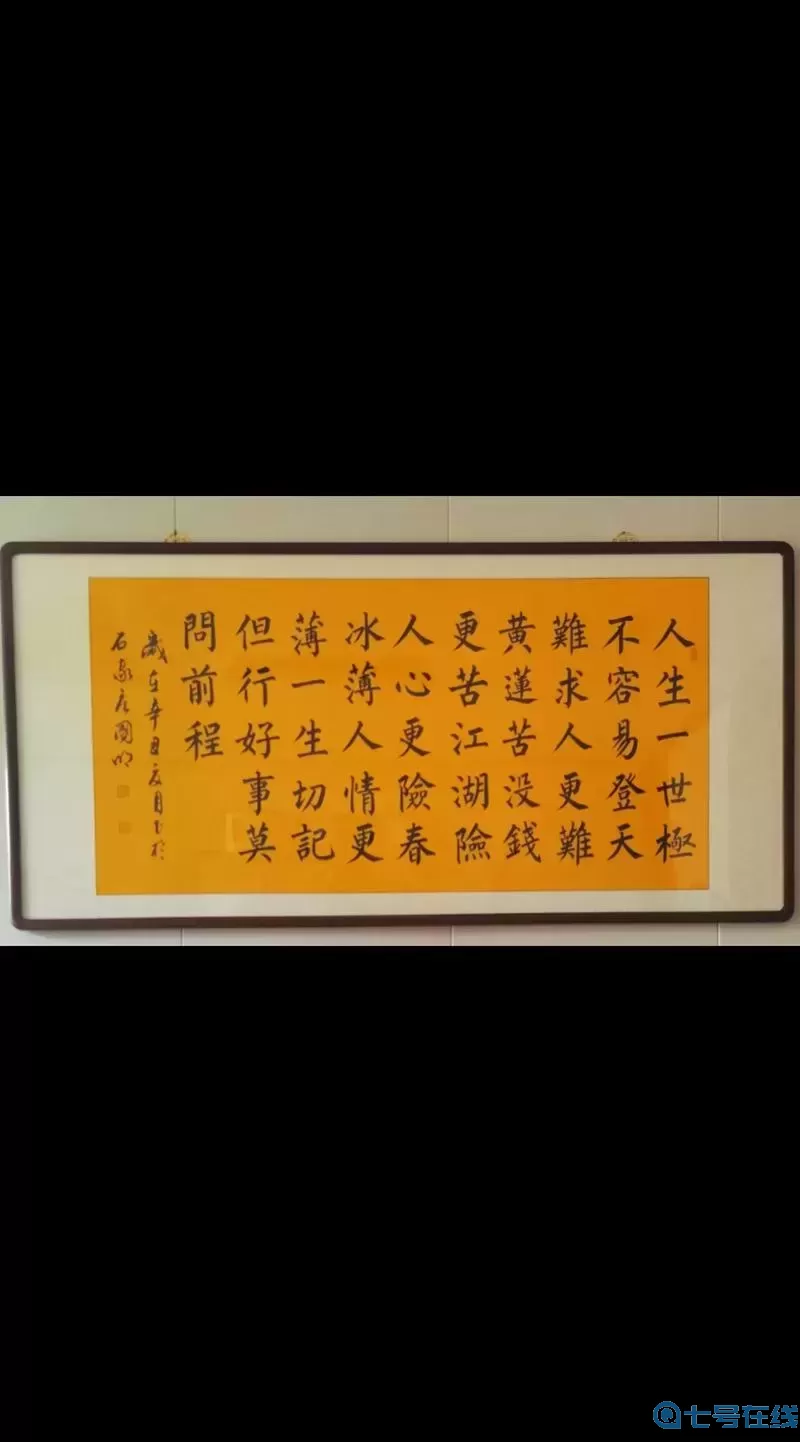 人生一世極
不容易登天
難求人更難
黃蓮苦没錢
更苦江湖險
人心更險春
冰薄人情更
薄一生切記
但行好事莫
問前程
歲在辛丑夏月書於
石家庄國明
七号在线